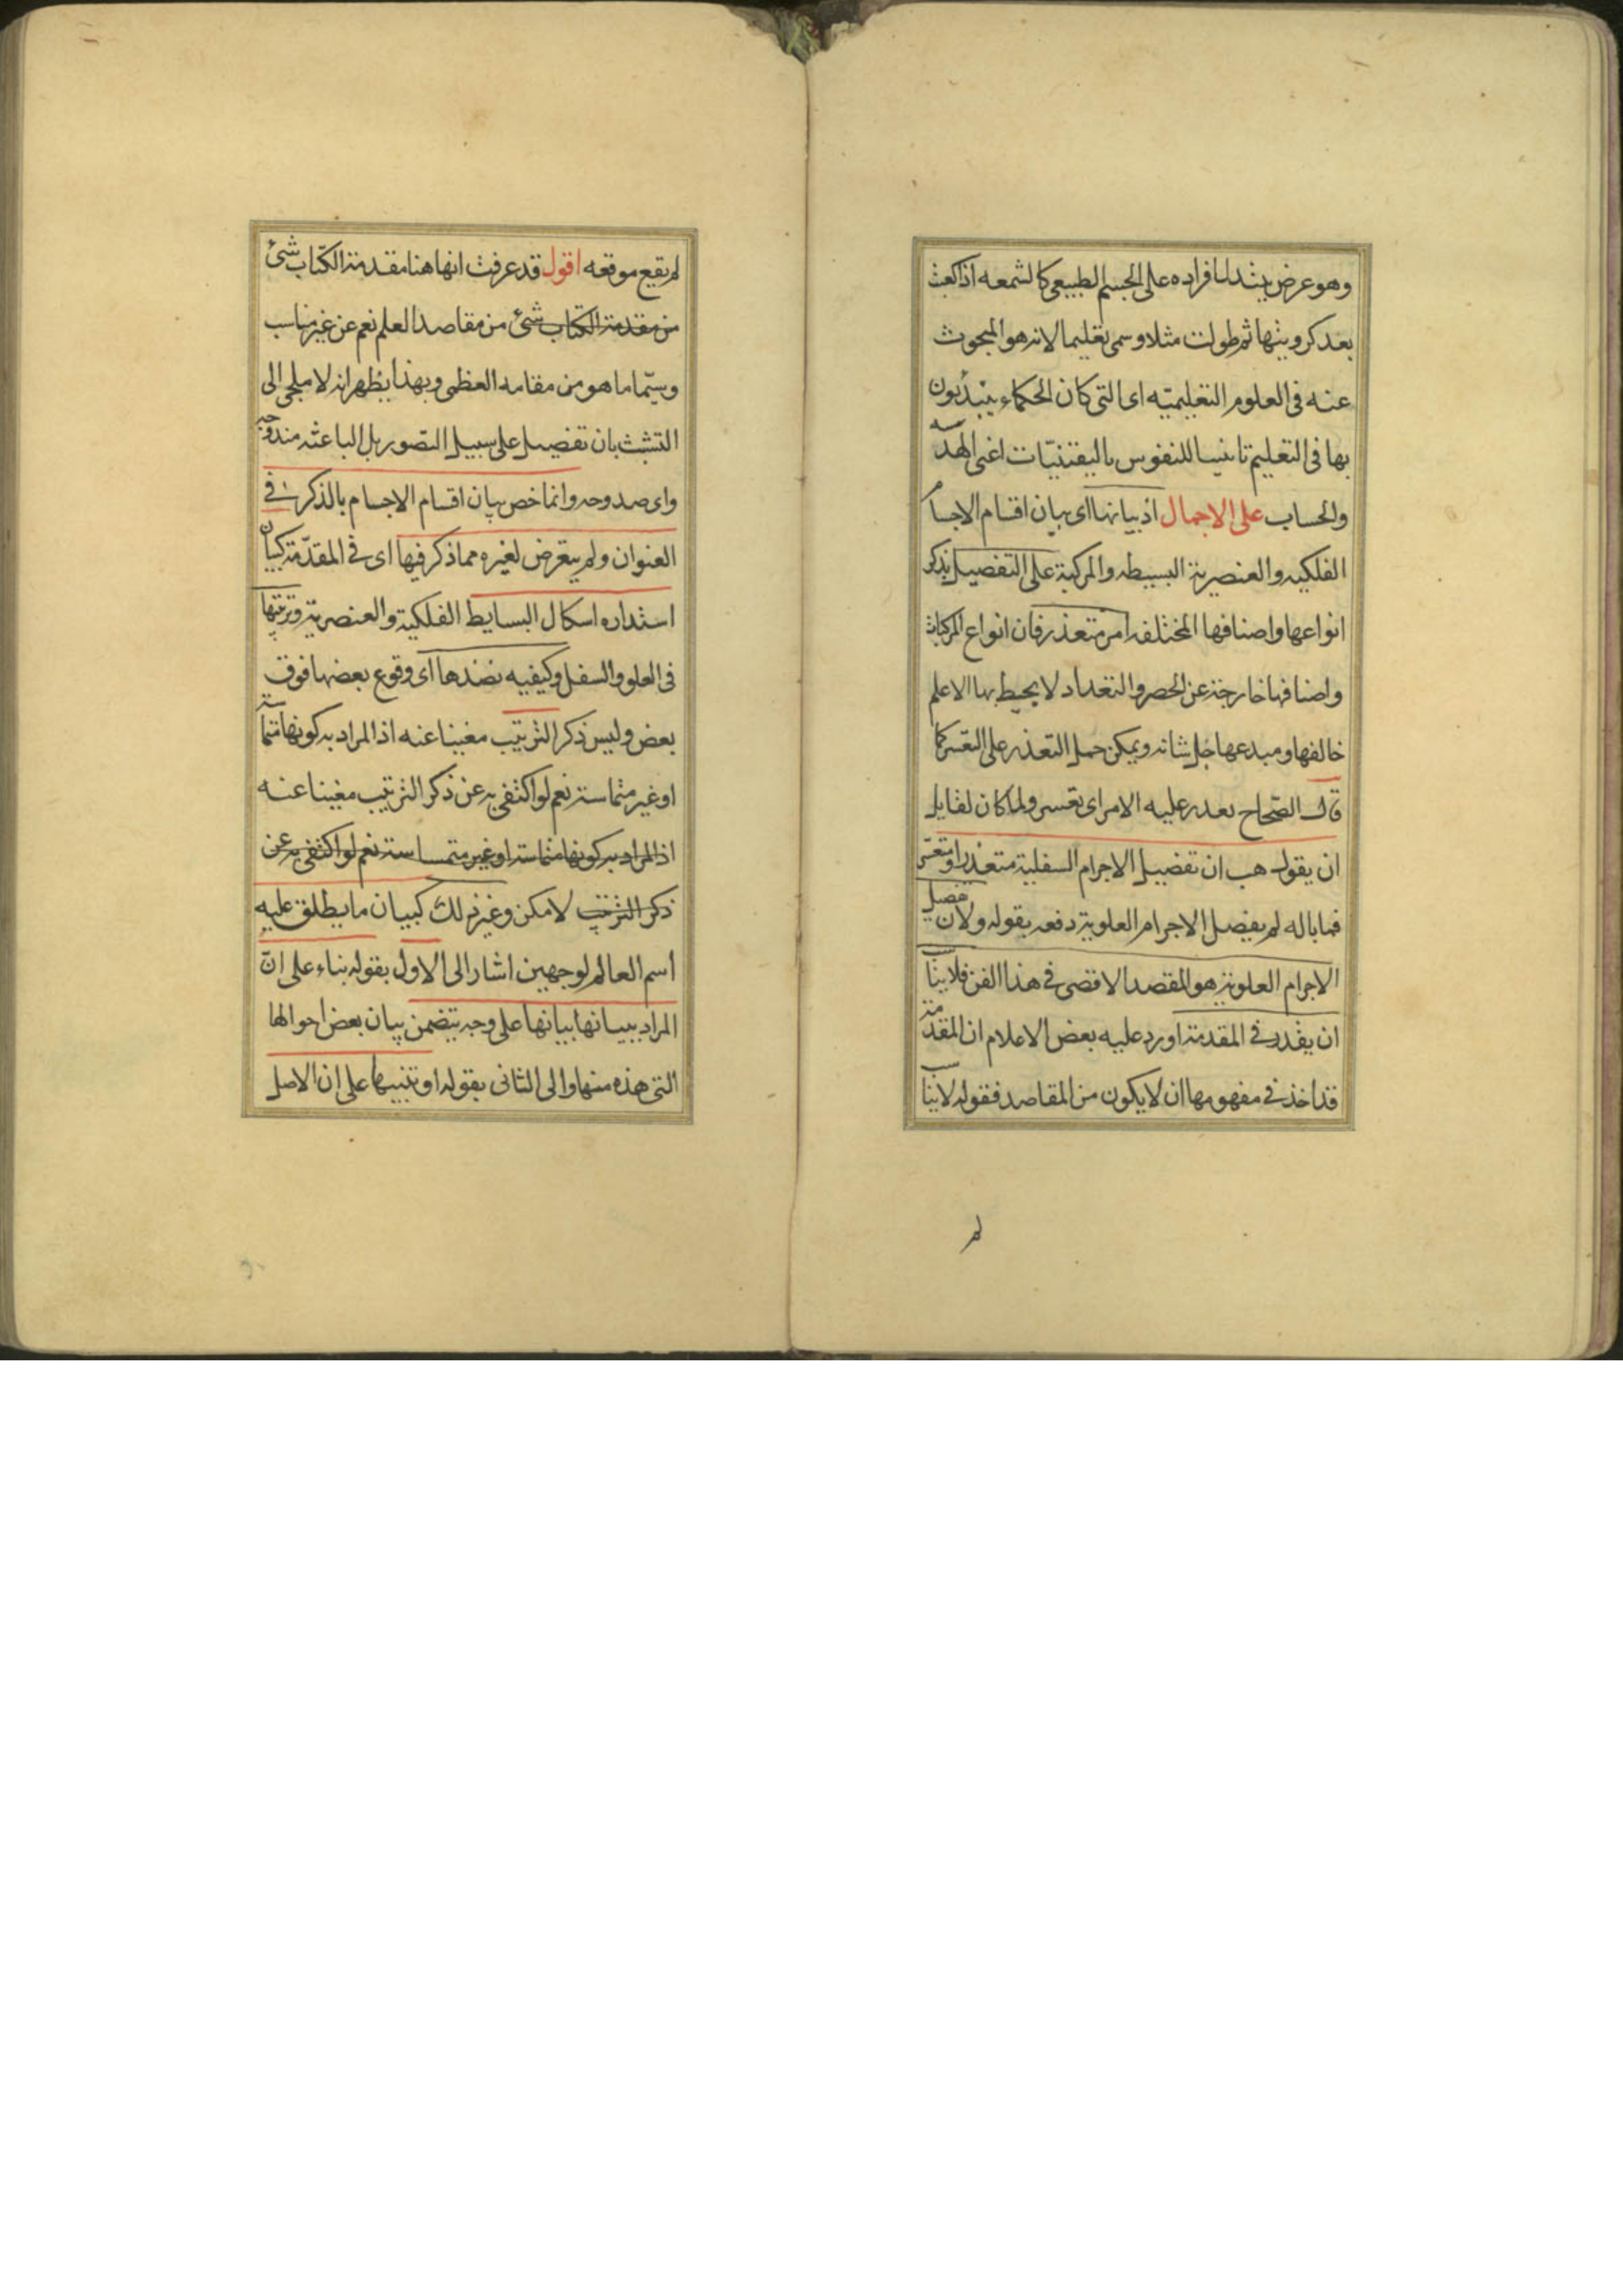 وهو عرض يتبدل افراده على الجسم الطبيعى كالشمعه اذا كعبت
بعد كرويتها ثم طولت مثلا وسمى تعليما لانه هو المبحوث
عنه فى العلوم التعليميّه اى التى كان الحكماء يبتدئون
بها فى التعليم تانيسا للنفوس باليقينيّات اعنى الهندسه
والحساب على الاجمال اذ بيانها اى بيان اقسام الاجسام
الفلكيه والعنصرية البسيطه والمركبة على التفصيل بذكر
انواعها واصنافها المختلفه امر متعذر فان انواع المركبات
واصنافها خارجة عن الحصر والتعداد لا يحيط بها الا علم
خالقها ومبدعها جل شانه ويمكن حمل التعذر على التعسر كما
قال الصّحاح تعذر عليه الامر اى تعسر ولما كان لقايل
ان يقول هب ان تفصيل الاجرام السفلية متعذر او متعسّر
فما باله لم يفصل الاجرام العلوية دفعه بقوله ولان تفصيل
الاجرام العلوية هو المقصد الاقصى فى هذا الفن فلا يناسب
ان يقدر فى المقدمة اورد عليه بعض الاعلام ان المقدّمة
قد اخذ فى مفهومها ان لا يكون من المقاصد فقوله لا يناسب
لم
لم يقع موقعه اقول قد عرفت انها هنا مقدمة الكتاب شئ
من مقدمة الكتاب شئ من مقاصد العلم نعم عن غير مناسب
وسيّما ما هو من مقامه العظمى وبهذا يظهر انه لا ملجى الى
التشبث بان تفصيل على سبيل التصور بل الباعثه مندوحه
واى مندوحه وانما خص بيان اقسام الاجسام بالذكر فى
العنوان ولم يتعرض لغيره مما ذكر فيها اى فى المقدّمة كبيان
استداره اشكال البسايط الفلكية والعنصرية وترتيبها
فى العلو والسفل وكيفيه نضدها اى وقوع بعضها فوق
بعض وليس ذكر الترتيب مغنيا عنه اذ المراد به كونها متماسة
او غير متماسة نعم لو اكتفى به عن ذكر الترتيب مغنيا عنه
اذ المراد به كونها متماسة او غير متماسة نعم لو اكتفى به عن
ذكر الترتيب لامكن وغير ذلك كبيان ما يطلق عليه
اسم العالم لوجهين اشار الى الاول بقوله بناء على انّ
المراد ببيانها بيانها على وجه يتضمن بيان بعض احوالها
التى هذه منها والى الثانى بقوله او تنبيها على ان الاصل